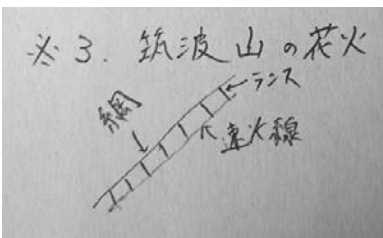 ※3. 筑波山の花火
ランス
綱
速火線